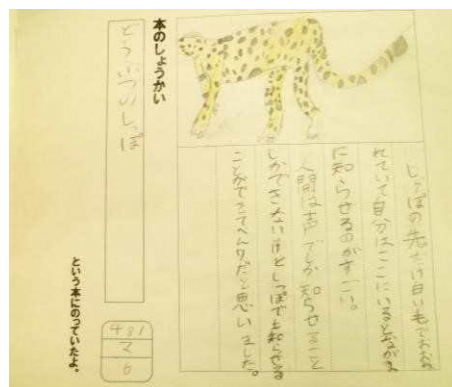 しっぽの先だけ白い毛でおおわ
れていて自分はここにいるとなかま
に知らせるのがすごい。
人間は声でしか知らせること
しかできないけどしっぽでも知らせる
ことができてべんりだと思いました。
本のしょうかい
どうぶつのしっぽ
という本にのっていたよ。
481
マ
6